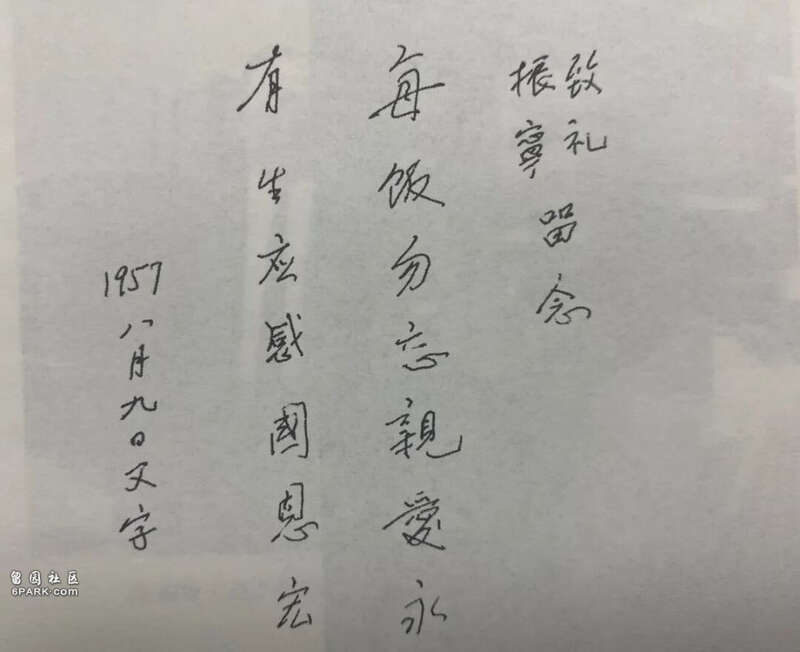 致礼
振寧 留念
每饭勿忘親愛永
有生应感國恩宏
1957 八月九日父字
留园社区
6PARK.com